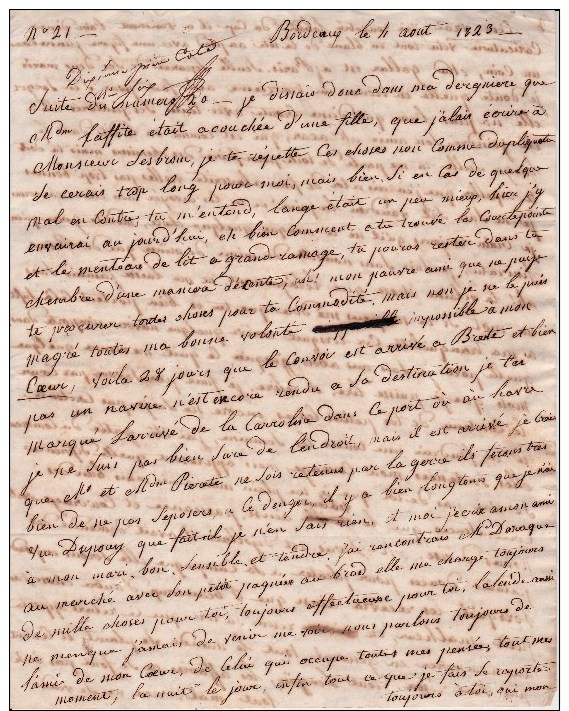 No 21 — Bordeaux le 4 aout 1823 —
Suite du numero 20 — je dissais donc dans ma dergniere que
Mdm laffite etait acouchée d'une fille, que jalais ecrire à
Monsieur Lesbrom, je te répette Ces choses non Comme duplicata
se cerais trop long pour moi, mais bien, si en Cas de quelque
mal en Contre, tu m'entend, l'ange était un peu mieux, hier j'y
envairai au jourd'hui, eh bien Comment a tu trouvé la Couctepointe
et le menteau de lit a grand ramage, tu pouras rester dans ta
chembre d'une maniere désente, ah! mon pauvre ami que ne puis je
te procurer toutes choses pour ta Commodité, mais non je ne le puis
magré toutes ma bonne volonté impossible à mon
Cœur, voila 28 jours que le Convoir est arrivé a Breste et bien
pas un navire n'est encore rendu a sa destination je tai
marque larrivé de la Carroline dans Ce port ou au havre
je ne suis pas bien sure de lendroit, mais il est arrivé je crois
que Mr et Mdm Pierete ne sois retenus par la gerre ils ferons tres
bien de ne pas seposers a Ce denger, il y a bien longtems que je n'ai
vu Dupouy que fait-il je n'en sais rien, et moi jecris a mon ami
a mon mari, bon, sensible et tendre, j'ai rencontrais Mdm
au merché avec son petit pagniée au brad elle me charge toujours
de mille choses pour toi, toujours affectueuse pour toi,
ne menque jamais de venir me voir nous parlons toujours de
l'ami de mon Cœur, de Celui que occupe toutes mes pensée, tout mes
moment, la nuit le jour, enfin tout ce que je fais se raporte
toujours à toi, qui mon